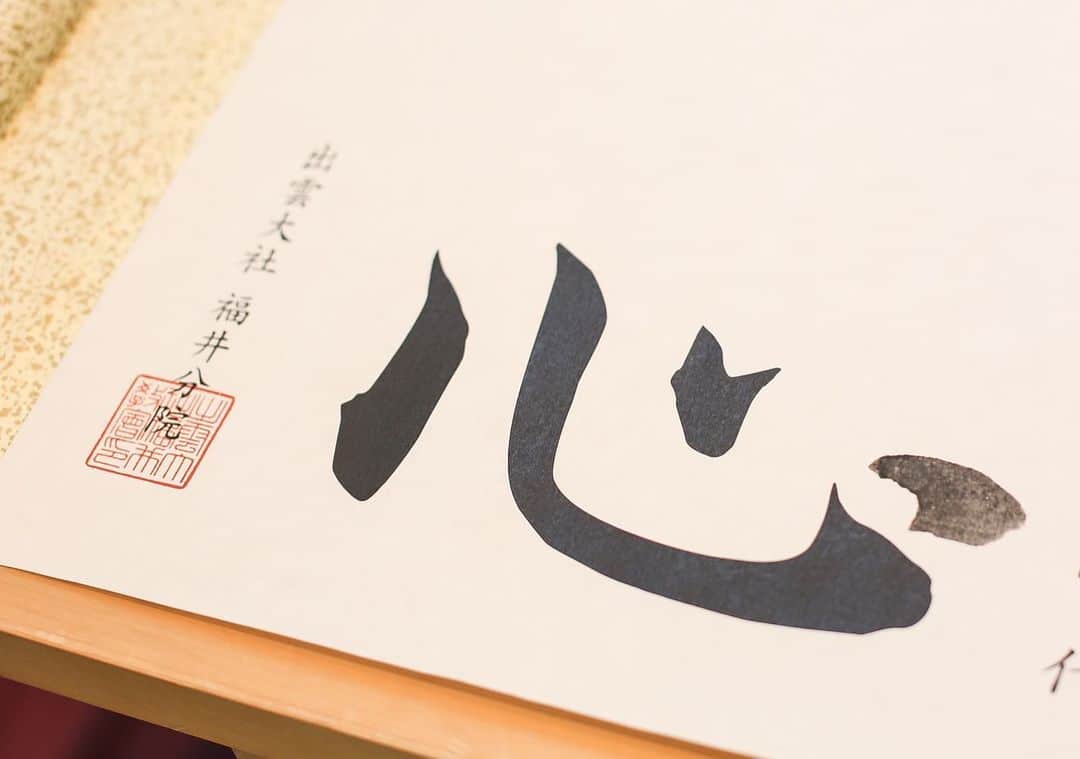 心
出雲大社 福井分院